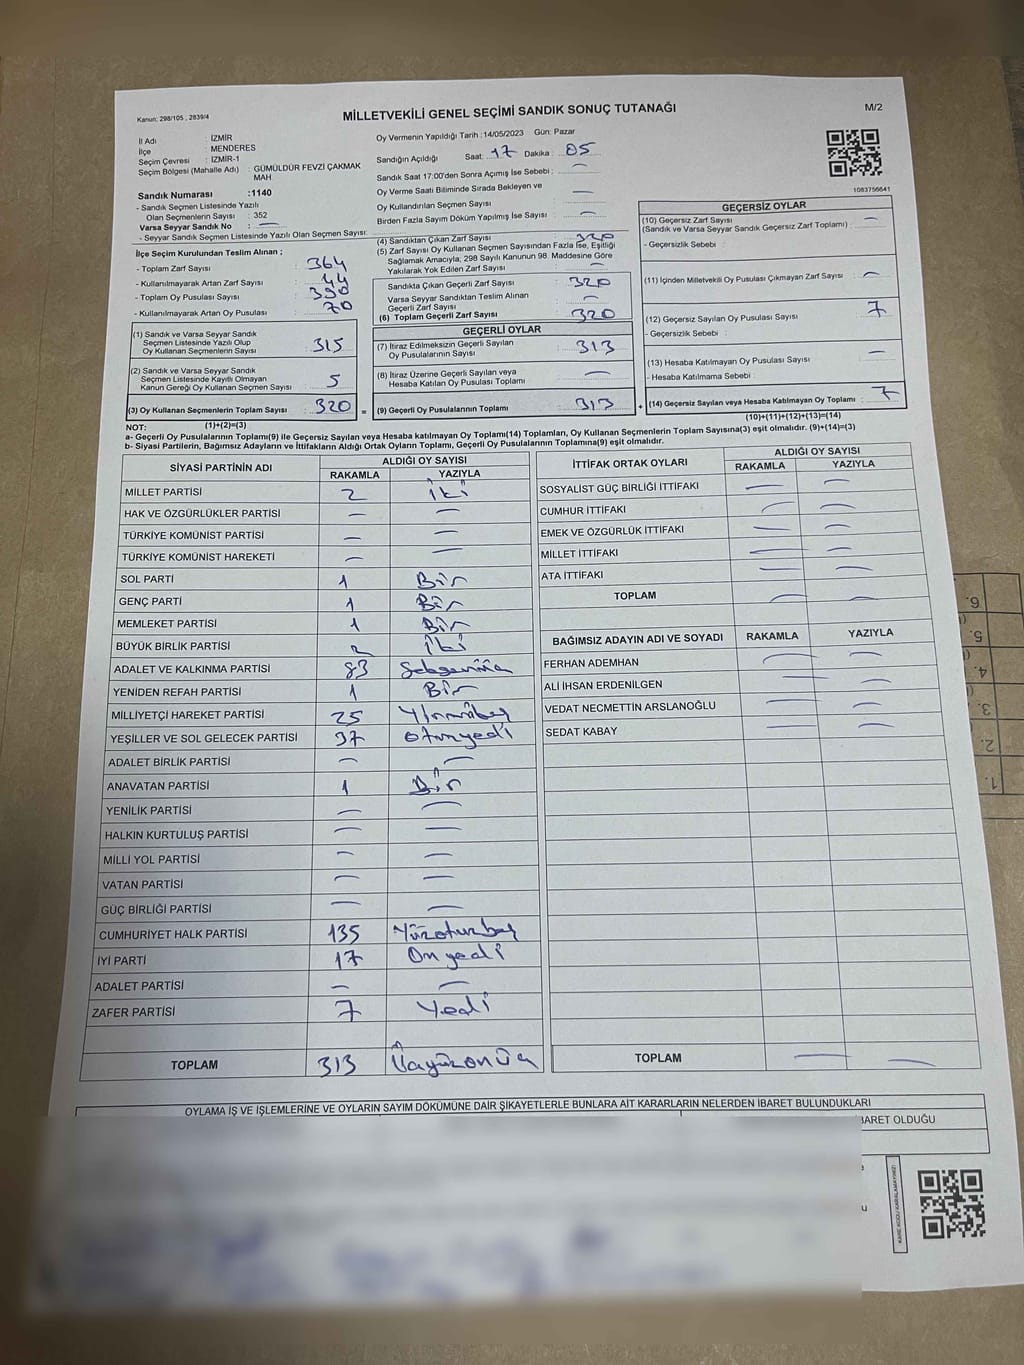 Kanun; 298/105 , 2839/4
MİLLETVEKİLİ GENEL SEÇİMİ SANDIK SONUÇ TUTANAĞI
M/2
İl Adı : İZMİR
İlçe : MENDERES
Seçim Çevresi : İZMİR-1
Seçim Bölgesi (Mahalle Adı) : GÜMÜLDÜR FEVZİ ÇAKMAK MAH
Sandık Numarası : 1140
- Sandık Seçmen Listesinde Yazılı
Olan Seçmenlerin Sayısı : 352
Varsa Seyyar Sandık No : —
- Seyyar Sandık Seçmen Listesinde Yazılı Olan Seçmen Sayısı:
Oy Vermenin Yapıldığı Tarih :14/05/2023 Gün: Pazar
Sandığın Açıldığı Saat: 17 Dakika : 05
Sandık Saat 17:00'den Sonra Açımış İse Sebebi : —
Oy Verme Saati Bitiminde Sırada Bekleyen ve
Oy Kullandırılan Seçmen Sayısı —
Birden Fazla Sayım Döküm Yapılmış İse Sayısı —
1083756641
İlçe Seçim Kurulundan Teslim Alınan ;
- Toplam Zarf Sayısı : 364
- Kullanılmayarak Artan Zarf Sayısı : 44
- Toplam Oy Pusulası Sayısı : 390
- Kullanılmayarak Artan Oy Pusulası : 70
(1) Sandık ve Varsa Seyyar Sandık
Seçmen Listesinde Yazılı Olup
Oy Kullanan Seçmenlerin Sayısı : 315
(2) Sandık ve Varsa Seyyar Sandık
Seçmen Listesinde Kayıtlı Olmayan
Kanun Gereği Oy Kullanan Seçmen Sayısı 5
(3) Oy Kullanan Seçmenlerin Toplam Sayısı : 320 =
(1)+(2)=(3)
(4) Sandıktan Çıkan Zarf Sayısı 320
(5) Zarf Sayısı Oy Kullanan Seçmen Sayısından Fazla İse, Eşitliği
Sağlamak Amacıyla; 298 Sayılı Kanunun 98. Maddesine Göre
Yakılarak Yok Edilen Zarf Sayısı : —
Sandıkta Çıkan Geçerli Zarf Sayısı : 320
Varsa Seyyar Sandıktan Teslim Alınan
Geçerli Zarf Sayısı : —
(6) Toplam Geçerli Zarf Sayısı : 320
GEÇERLİ OYLAR
(7) İtiraz Edilmeksizin Geçerli Sayılan
Oy Pusulalarının Sayısı : 313
(8) İtiraz Üzerine Geçerli Sayılan veya
Hesaba Katılan Oy Pusulası Toplamı : —
(9) Geçerli Oy Pusulalarının Toplamı : 313 +
GEÇERSİZ OYLAR
(10) Geçersiz Zarf Sayısı —
(Sandık ve Varsa Seyyar Sandık Geçersiz Zarf Toplamı) :
- Geçersizlik Sebebi :
(11) İçinden Milletvekili Oy Pusulası Çıkmayan Zarf Sayısı : —
(12) Geçersiz Sayılan Oy Pusulası Sayısı : 7
- Geçersizlik Sebebi :
(13) Hesaba Katılmayan Oy Pusulası Sayısı : —
- Hesaba Katılmama Sebebi :
(14) Geçersiz Sayılan veya Hesaba Katılmayan Oy Toplamı : 7
(10)+(11)+(12)+(13)=(14)
NOT:
a- Geçerli Oy Pusulalarının Toplamı(9) ile Geçersiz Sayılan veya Hesaba katılmayan Oy Toplamı(14) Toplamları, Oy Kullanan Seçmenlerin Toplam Sayısına(3) eşit olmalıdır. (9)+(14)=(3)
b- Siyasi Partilerin, Bağımsız Adayların ve İttifakların Aldığı Ortak Oyların Toplamı, Geçerli Oy Pusulalarının Toplamına(9) eşit olmalıdır.
SİYASİ PARTİNİN ADI ALDIĞI OY SAYISI
RAKAMLA YAZIYLA
MİLLET PARTİSİ 2 İki
HAK VE ÖZGÜRLÜKLER PARTİSİ — —
TÜRKİYE KOMÜNİST PARTİSİ — —
TÜRKİYE KOMÜNİST HAREKETİ — —
SOL PARTİ 1 Bir
GENÇ PARTİ 1 Bir
MEMLEKET PARTİSİ 1 Bir
BÜYÜK BİRLİK PARTİSİ 2 İki
ADALET VE KALKINMA PARTİSİ 83 Seksenüç
YENİDEN REFAH PARTİSİ 1 Bir
MİLLİYETÇİ HAREKET PARTİSİ 25 Yirmibeş
YEŞİLLER VE SOL GELECEK PARTİSİ 37 otuzyedi
ADALET BİRLİK PARTİSİ — —
ANAVATAN PARTİSİ 1 Bir
YENİLİK PARTİSİ — —
HALKIN KURTULUŞ PARTİSİ — —
MİLLİ YOL PARTİSİ — —
VATAN PARTİSİ — —
GÜÇ BİRLİĞİ PARTİSİ — —
CUMHURİYET HALK PARTİSİ 135 Yüzotuzbeş
İYİ PARTİ 17 Onyedi
ADALET PARTİSİ — —
ZAFER PARTİSİ 7 Yedi
TOPLAM 313 Üçyüzonüç
İTTİFAK ORTAK OYLARI ALDIĞI OY SAYISI
RAKAMLA YAZIYLA
SOSYALİST GÜÇ BİRLİĞİ İTTİFAKI — —
CUMHUR İTTİFAKI — —
EMEK VE ÖZGÜRLÜK İTTİFAKI — —
MİLLET İTTİFAKI — —
ATA İTTİFAKI — —
TOPLAM — —
BAĞIMSIZ ADAYIN ADI VE SOYADI RAKAMLA YAZIYLA
FERHAN ADEMHAN — —
ALİ İHSAN ERDENİLGEN — —
VEDAT NECMETTİN ARSLANOĞLU — —
SEDAT KABAY — —
TOPLAM — —
OYLAMA İŞ VE İŞLEMLERİNE VE OYLARIN SAYIM DÖKÜMÜNE DAİR ŞİKAYETLERLE BUNLARA AİT KARARLARIN NELERDEN İBARET BULUNDUKLARI
BARET OLDUĞU
KARE KODU KARALAMAYINIZ!
6.
5.
4.
3.
2.
1.